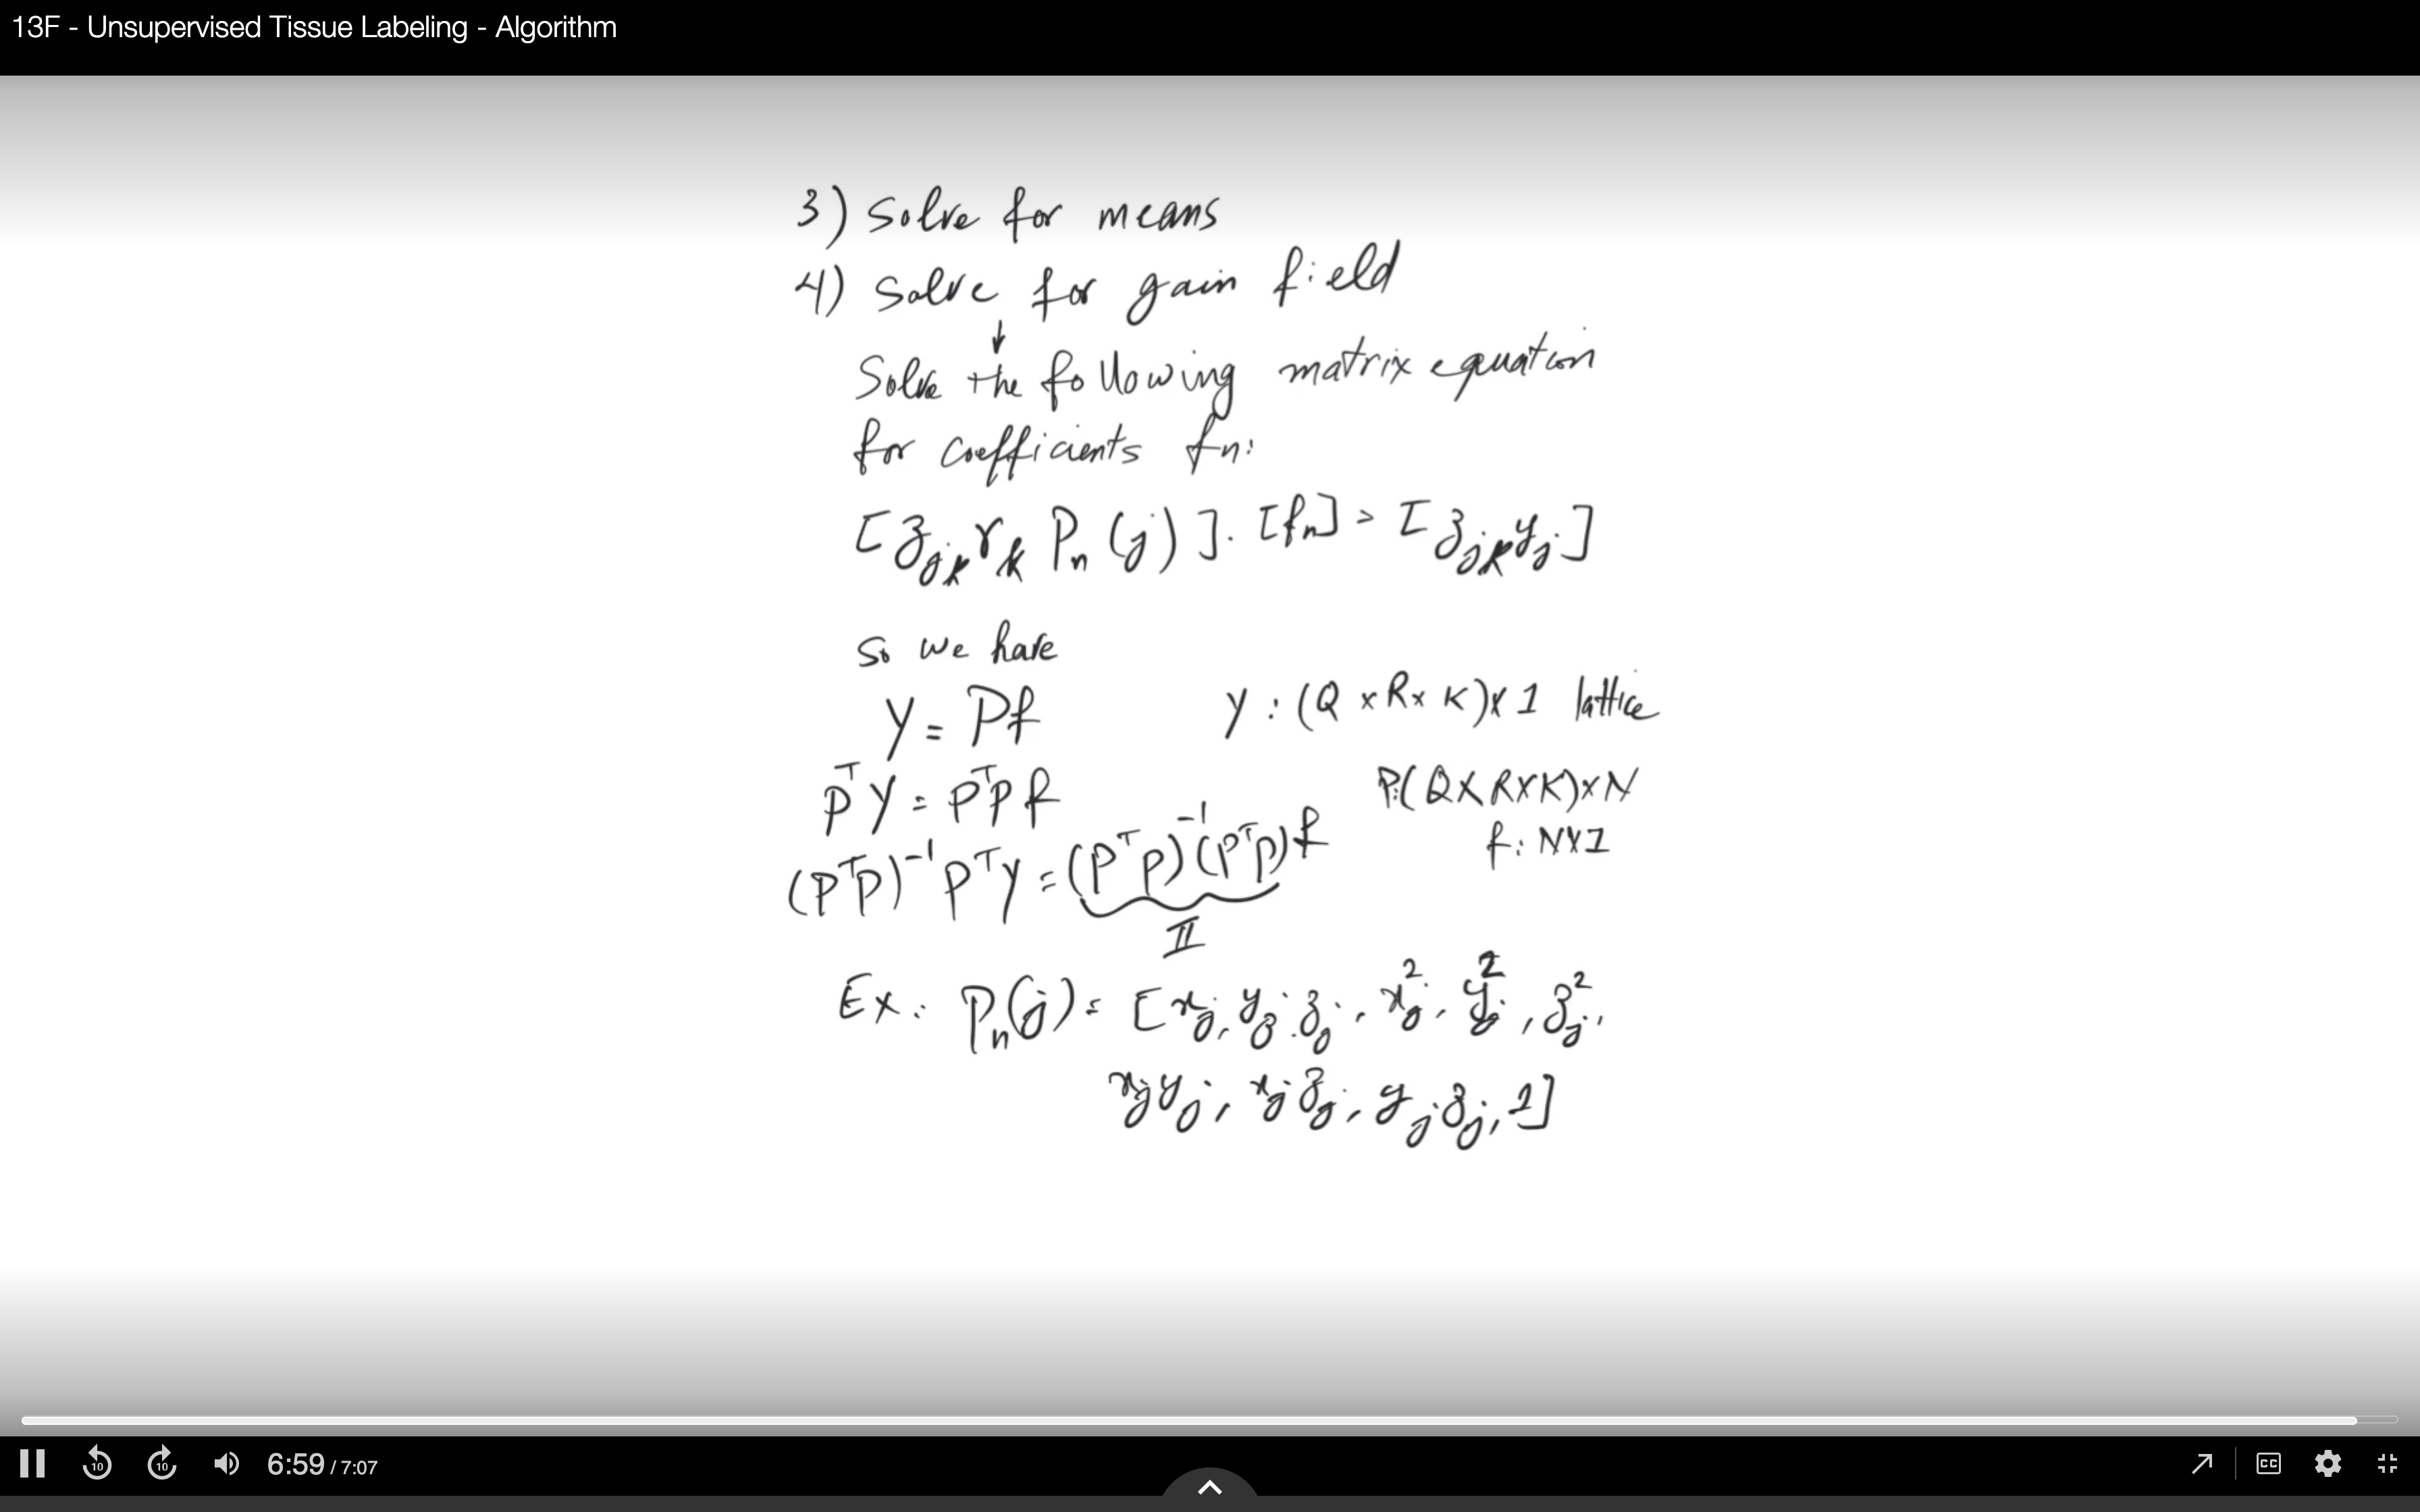 13F - Unsupervised Tissue Labeling - Algorithm
3) Solve for means
4) Solve for gain field
↓
Solve the following matrix equation
for coefficients fn:
[z_jk r_k P_n(j)] · [f_n] = [z_jk y_j]
so we have
y = Pf    y : (Q × R × K) × 1 lattice
P^T y = P^T P f    P: (Q × R × K) × N
f: N×1
(P^T P)^-1 P^T y = (P^T P)^-1 (P^T P) f
II
Ex: P_n(j) = [x_j, y_j, z_j, x_j^2, y_j^2, z_j^2,
x_j y_j, x_j z_j, y_j z_j, 1]
10 10 6:59 / 7:07 CC